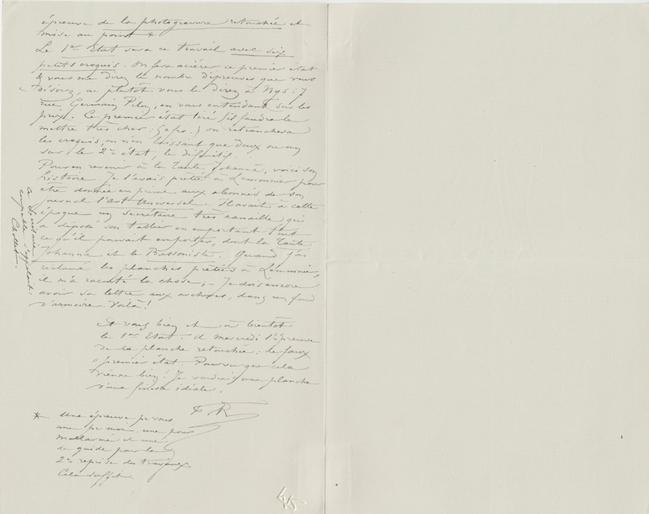 épreuve de la photogravure retouchée et
mise au point *
Le 1er Etat sera ce travail avec six
petits croquis. On fera aciérer ce premier état
& vous me direz le nombre d'épreuves que vous
désirez, ou plutôt vous le direz à Nys: 7
rue Germain Pilon, en vous entendant sur les
prix. Ce premier état tiré il faudra le
mettre très cher. on retranchera
les croquis, en n'en laissant que deux ou un
sur le 2e état, le définitif.
Pour en revenir à la Tante Johanna, voici son
histoire. Je l'avais prêtée à Lemonnier pour
être donnée en prime aux abonnés de son
journal l'Art Universel. Il avait à cette
époque un secrétaire très canaille qui
a déposé son tablier en emportant tout
ce qu'il pouvait emporter, dont la Tante
Johanna et le Bassoniste. Quand j'ai
réclamé les planches prêtées à Lemonnier,
il m'a raconté la chose. Je dois encore
avoir sa lettre aux archives, dans un fond
d'armoire. Voilà!
Et vous bien et à bientôt
le 1er Etat. & mercredi l'épreuve
de la planche retouchée: le faux
premier état. Pourvu que cela
vienne bien! Je voudrais une planche
d'une finesse idéale.
FR
* Une épreuve pr vous
une pr moi, une pour
Mallarmé et une
de guide pour la
2e reprise des travaux.
Cela suffit.
Ce secrétaire
s'appelait
45